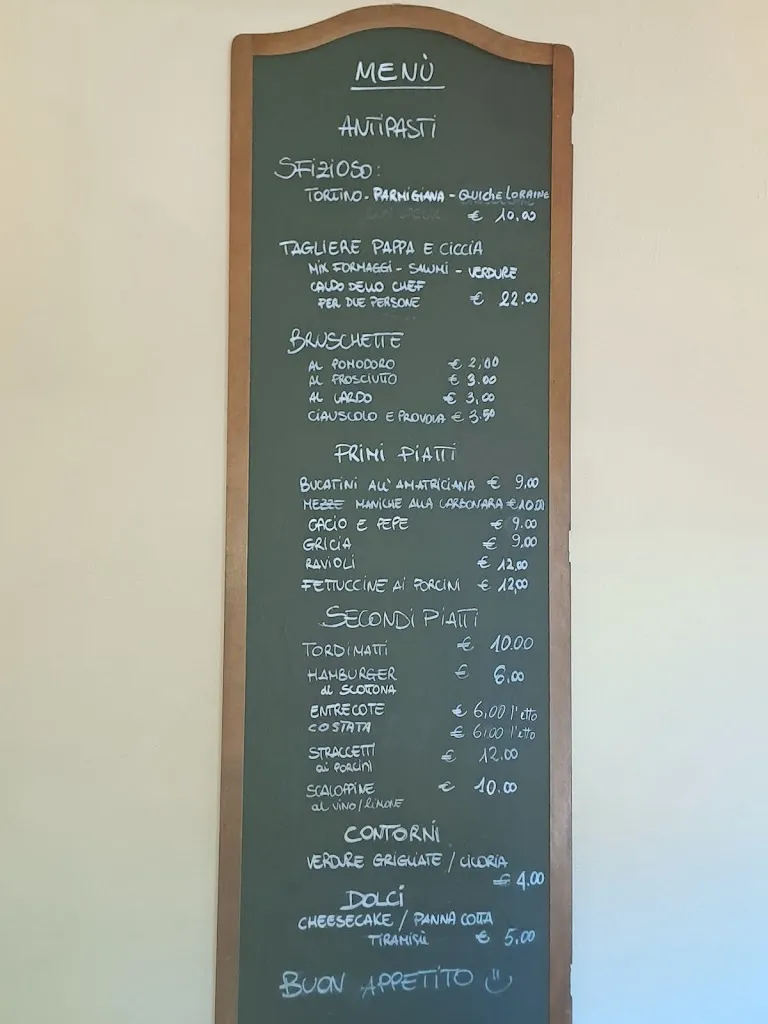 MENÙ
ANTIPASTI
SFIZIOSO:
TORTINO - PARMIGIANA - QUICHE LORAINE
€ 10,00
TAGLIERE PAPPA E CICCIA
MIX FORMAGGI - SALUMI - VERDURE
CALDO DELLO CHEF
PER DUE PERSONE € 22.00
BRUSCHETTE
AL POMODORO € 2,00
AL PROSCIUTTO € 3.00
AL LARDO € 3,00
CIAUSCOLO E PROVOLA € 3.50
PRIMI PIATTI
BUCATINI ALL'AMATRICIANA € 9.00
MEZZE MANICHE ALLA CARBONARA € 10.00
CACIO E PEPE € 9.00
GRICIA € 9,00
RAVIOLI € 12,00
FETTUCCINE AI PORCINI € 12,00
SECONDI PIATTI
TORDIMATTI € 10.00
HAMBURGER € 6,00
di SCOTTONA
ENTRECOTE € 6,00 l'etto
COSTATA € 6,00 l'etto
STRACCETTI € 12.00
ai PORCINI
SCALOPPINE € 10.00
al VINO/LIMONE
CONTORNI
VERDURE GRIGLIATE / CICORIA
€ 4.00
DOLCI
CHEESECAKE / PANNA COTTA
TIRAMISÙ € 5,00
BUON APPETITO